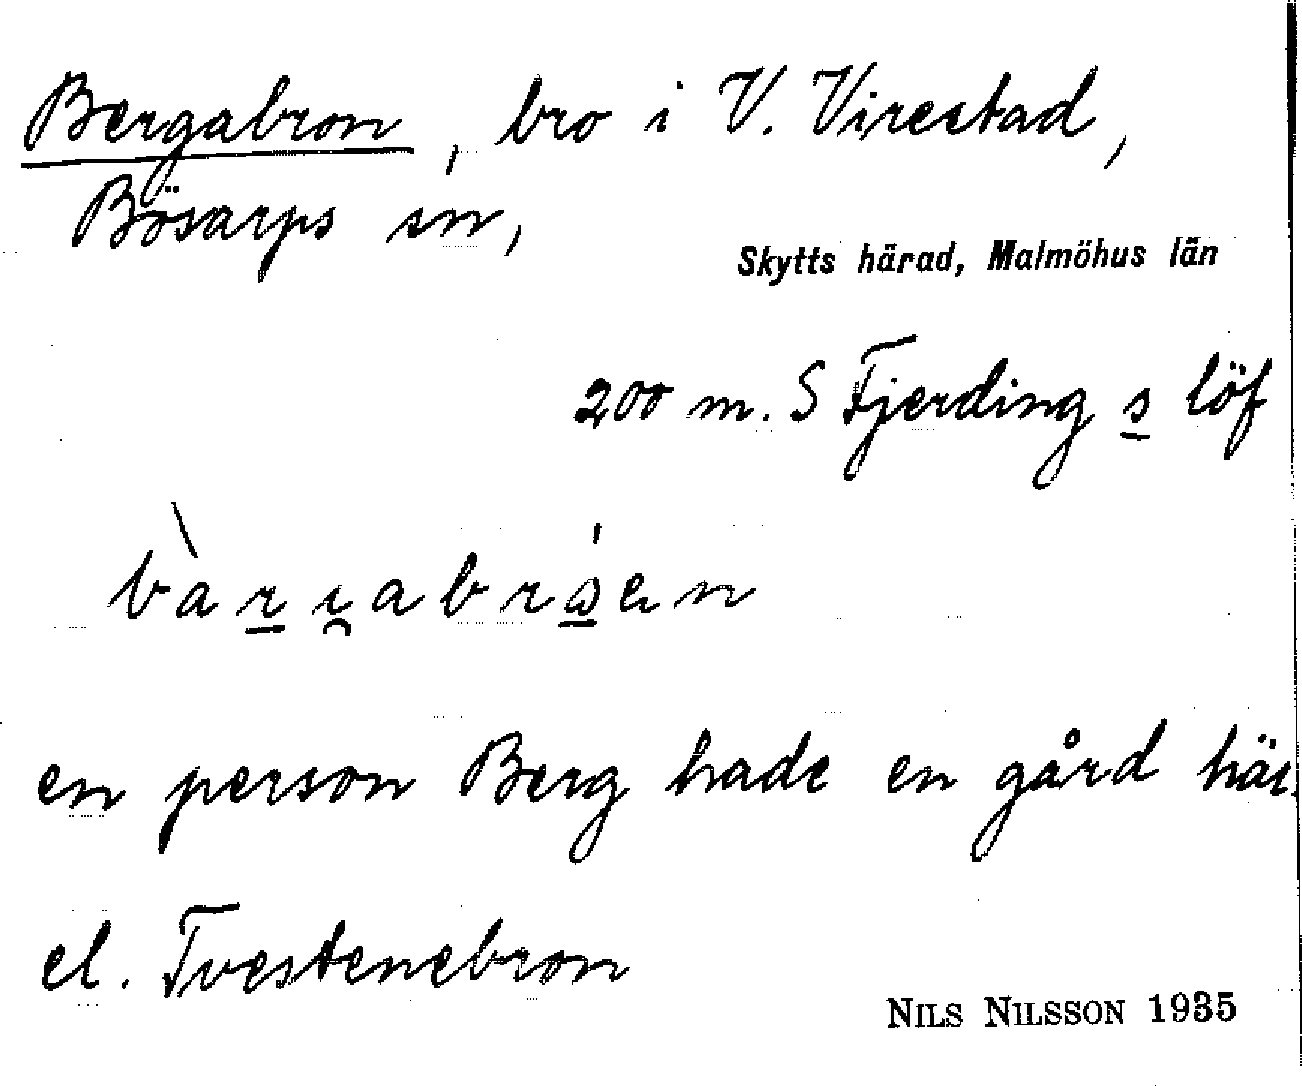 Bergabron, bro i V. Virestad,
Bösarps sn,
Skytts härad, Malmöhus län
200 m. S Fjerding s löf
en person Berg hade en gård här.
el. Tvestenebron
NILS NILSSON 1935